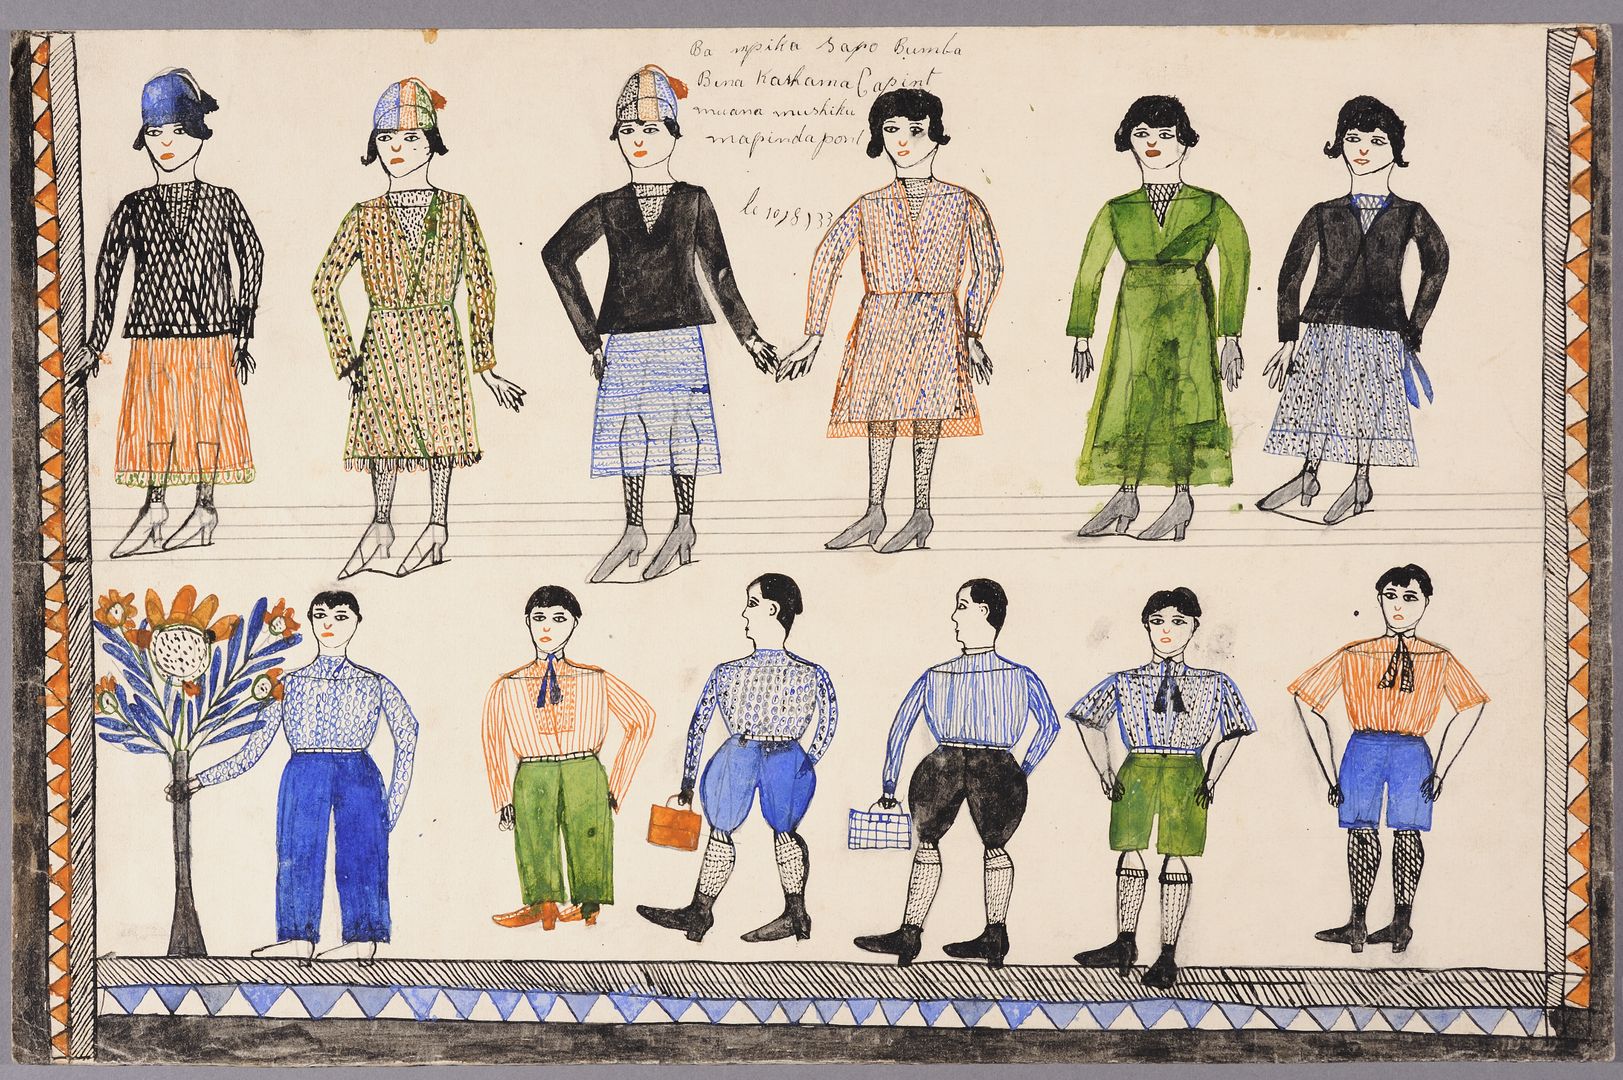 Ba mpika Sapo Bumba
Bena Kashama Capint
muana mushiku
mapinda pont
le 10/8/33